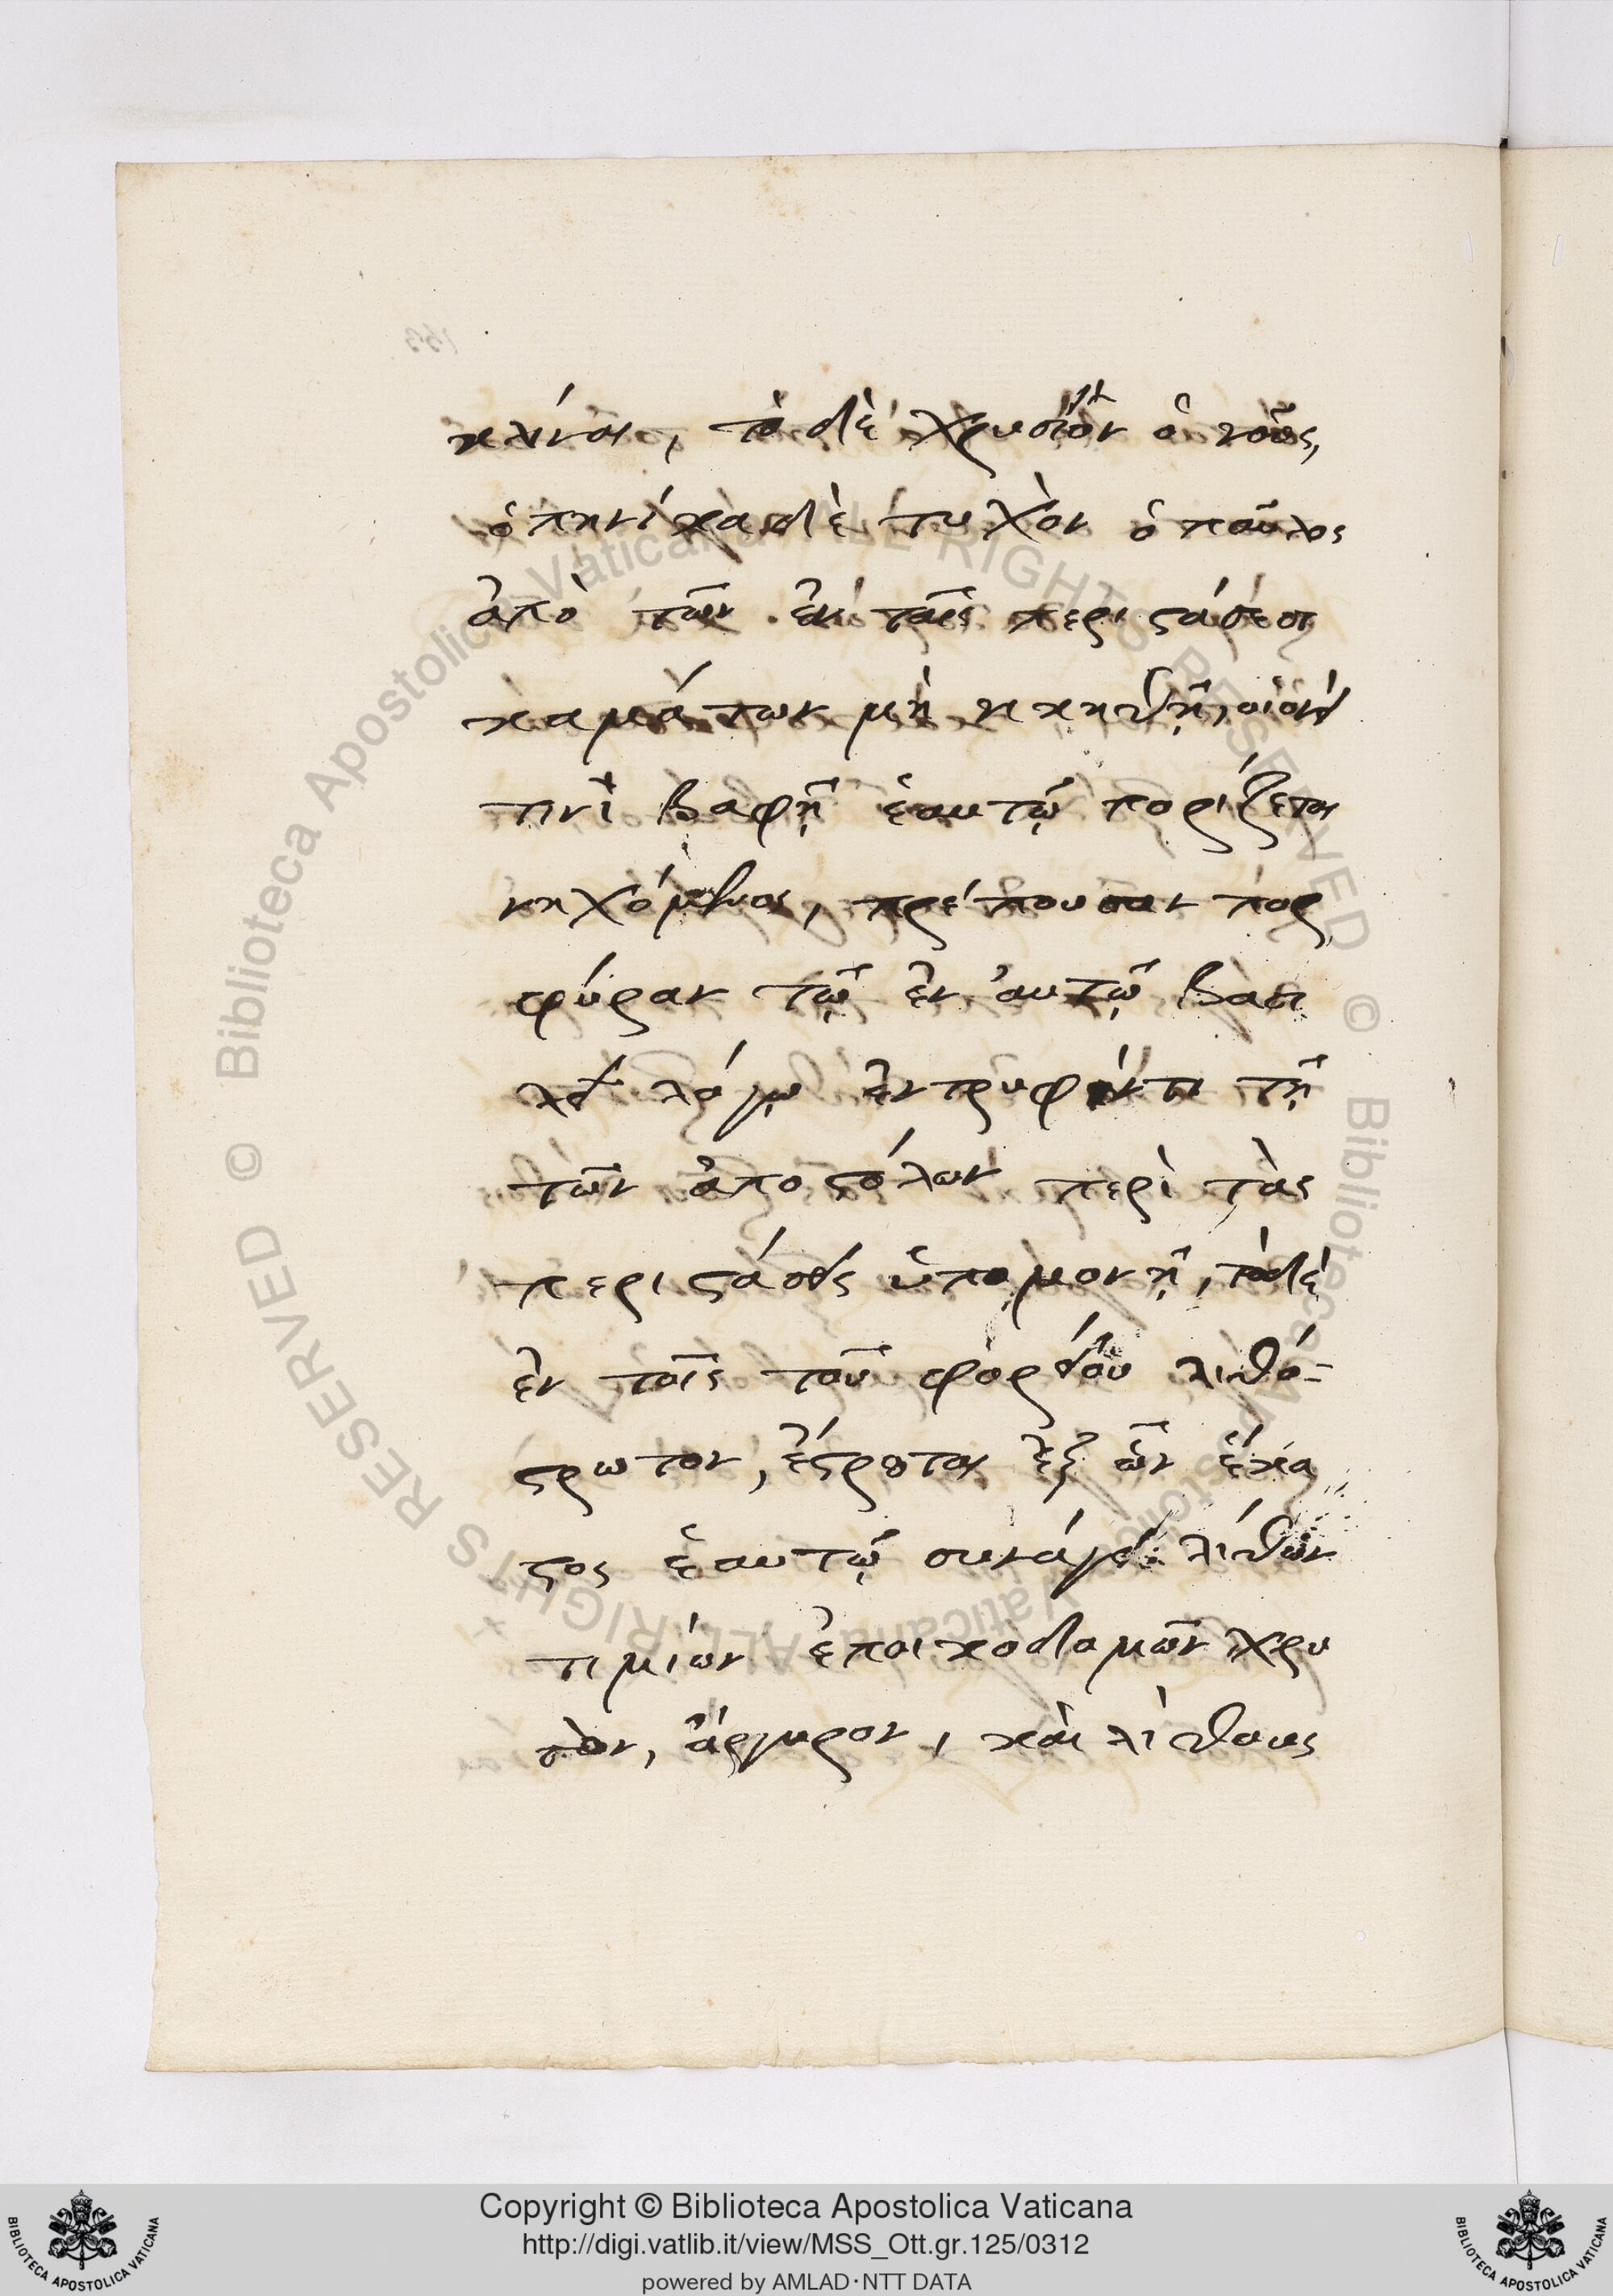 κλίναι, τὸ δὲ χρυσίον ὁ νοῦς,
ὁπηνίκα δὲ τυχὸν ὁ παῦλος
ἀπὸ τῶν ἐν ταῖς περιστάσεσι
καμάτων μὴ νικηθῇ, οἱονεί
τινι βαφῇ ἑαυτῷ πορίζεται
νηχόμενος, πρέπουσαν πορ
φύραν τῷ ἐν αὐτῷ βασι
λεῖ λόγῳ ἐντρυφῶντι τῇ
τῶν ἀποστόλων περὶ τὰς
περιστάσεις ὑπομονῇ, τὸ δὲ
ἐν τοῖς τοῦ φορείου λιθό-
στρωτον, ἔστρωται ἐξ ὧν ἕκα
στος ἑαυτῷ συνάγει λίθων
τιμίων ἐποικοδομῶν χρυ
σὸν, ἄργυρον, καὶ λίθους
© Biblioteca Apostolica Vaticana ALL RIGHTS RESERVED © Biblioteca Apostolica Vaticana ALL RIGHTS RESERVED
Copyright © Biblioteca Apostolica Vaticana
http://digi.vatlib.it/view/MSS_Ott.gr.125/0312
powered by AMLAD·NTT DATA
BIBLIOTECA APOSTOLICA VATICANA
BIBLIOTECA APOSTOLICA VATICANA